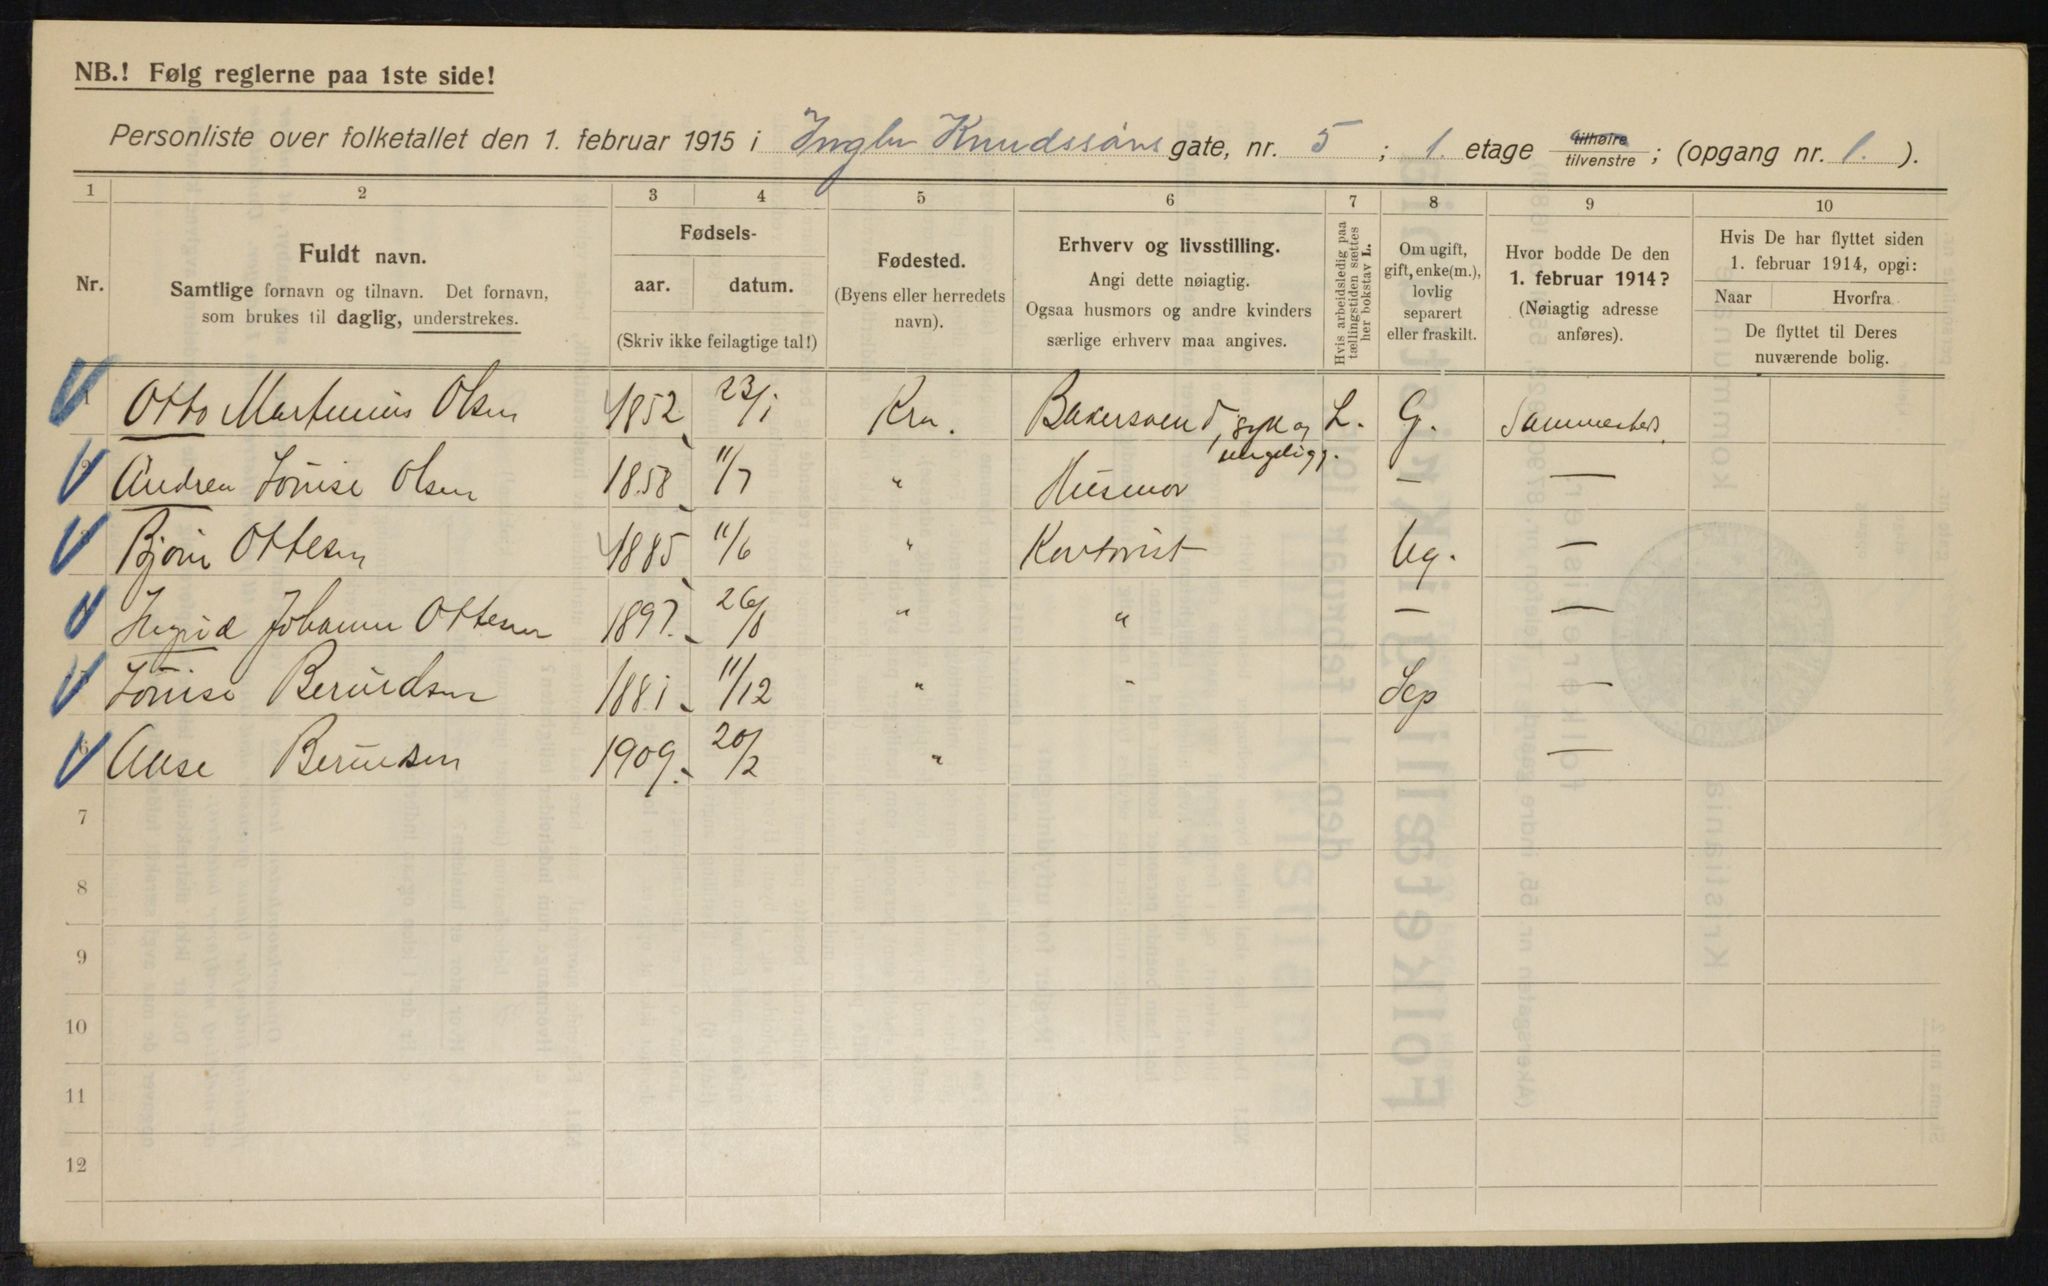 NB.! Følg reglerne paa 1ste side!
Personliste over folketallet den 1. februar 1915 i Knudssøns gate, nr. 5 ; 1. etage tilhøire / tilvenstre ; (opgang nr. 1. ).
1 2 3 4 5 6 7 8 9 10
Nr.
Fuldt navn.
Samtlige fornavn og tilnavn. Det fornavn,
som brukes til daglig, understrekes.
Fødsels-
aar. datum.
(Skriv ikke feilagtige tal!)
Fødested.
(Byens eller herredets
navn).
Erhverv og livsstilling.
Angi dette nøiagtig.
Ogsaa husmors og andre kvinders
særlige erhverv maa angives.
Hvis arbeidsledig paa
tællingstiden sættes
her bokstav L.
Om ugift,
gift, enke(m.),
lovlig
separert
eller fraskilt.
Hvor bodde De den
1. februar 1914?
(Nøiagtig adresse
anføres).
Hvis De har flyttet siden
1. februar 1914, opgi:
Naar Hvorfra
De flyttet til Deres
nuværende bolig.
1 Otto Martinius Olsen 1852 23/1 Kra. Bakersvend, syk og L. G. Sammesteds.
2 Andrea Louise Olsen 1858 11/7 " Husmor — —
3 Bjørn Ottesen 1885 11/6 " Kontorist Ug. —
4 Ingrid Johanne Ottesen 1897. 26/8 " " — —
5 Louise Berntsen 1881. 11/12 " " Sep —
6 Aase Berntsen 1909. 20/2 " —
7
8
9
10
11
12